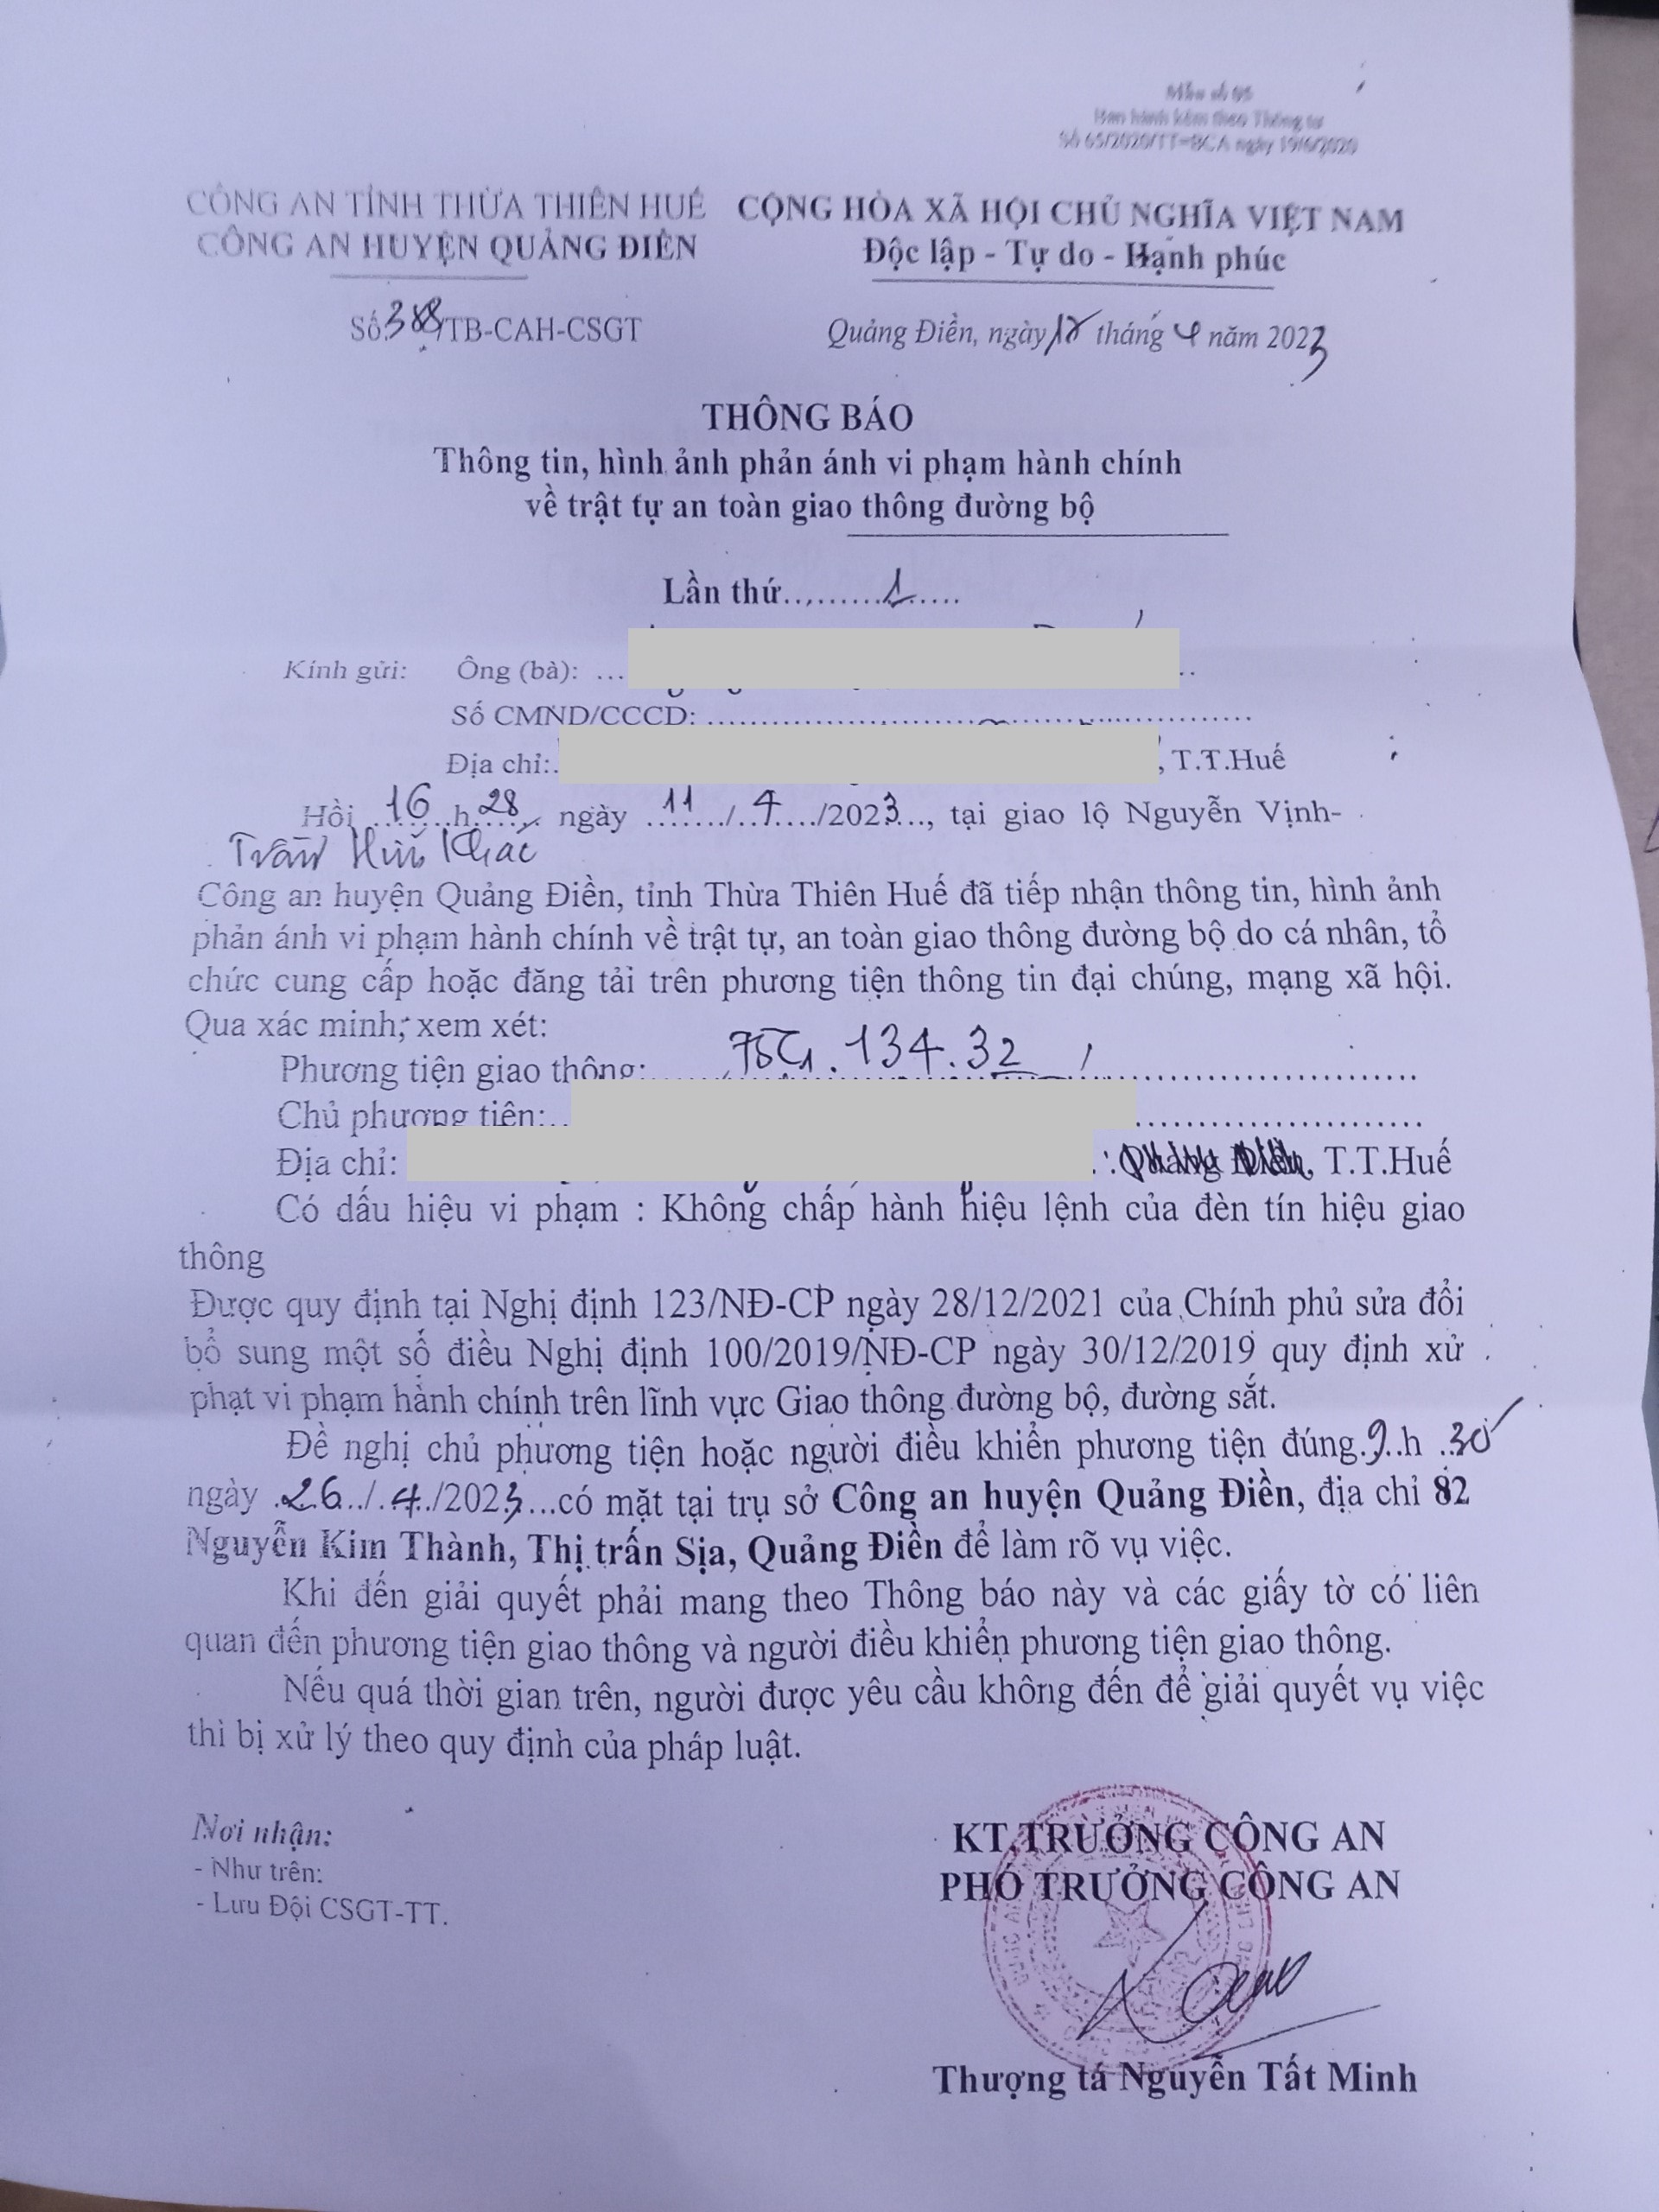 Mẫu số 05
Ban hành kèm theo Thông tư
Số 65/2020/TT-BCA ngày 19/6/2020
CÔNG AN TỈNH THỪA THIÊN HUẾ CỘNG HÒA XÃ HỘI CHỦ NGHĨA VIỆT NAM
CÔNG AN HUYỆN QUẢNG ĐIỀN Độc lập - Tự do - Hạnh phúc
Số: /TB-CAH-CSGT Quảng Điền, ngày tháng 4 năm 2023
THÔNG BÁO
Thông tin, hình ảnh phản ánh vi phạm hành chính
về trật tự an toàn giao thông đường bộ
Lần thứ.........1.....
Kính gửi: Ông (bà): ...
Số CMND/CCCD: ........................
Địa chỉ:. , T.T.Huế
Hồi 16 h 28 ngày 11 / 4 /2023..., tại giao lộ Nguyễn Vịnh-
Trần Hữu Khác
Công an huyện Quảng Điền, tỉnh Thừa Thiên Huế đã tiếp nhận thông tin, hình ảnh
phản ánh vi phạm hành chính về trật tự, an toàn giao thông đường bộ do cá nhân, tổ
chức cung cấp hoặc đăng tải trên phương tiện thông tin đại chúng, mạng xã hội.
Qua xác minh, xem xét:
Phương tiện giao thông: 75G1.134.32
Chủ phương tiện:..
Địa chỉ: , T.T.Huế
Có dấu hiệu vi phạm : Không chấp hành hiệu lệnh của đèn tín hiệu giao
thông
Được quy định tại Nghị định 123/NĐ-CP ngày 28/12/2021 của Chính phủ sửa đổi
bổ sung một số điều Nghị định 100/2019/NĐ-CP ngày 30/12/2019 quy định xử
phạt vi phạm hành chính trên lĩnh vực Giao thông đường bộ, đường sắt.
Đề nghị chủ phương tiện hoặc người điều khiển phương tiện đúng.9..h ..30
ngày .26../.4../2023...có mặt tại trụ sở Công an huyện Quảng Điền, địa chỉ 82
Nguyễn Kim Thành, Thị trấn Sịa, Quảng Điền để làm rõ vụ việc.
Khi đến giải quyết phải mang theo Thông báo này và các giấy tờ có liên
quan đến phương tiện giao thông và người điều khiển phương tiện giao thông.
Nếu quá thời gian trên, người được yêu cầu không đến để giải quyết vụ việc
thì bị xử lý theo quy định của pháp luật.
Nơi nhận:
- Như trên:
- Lưu Đội CSGT-TT.
KT.TRƯỞNG CÔNG AN
PHÓ TRƯỞNG CÔNG AN
Thượng tá Nguyễn Tất Minh